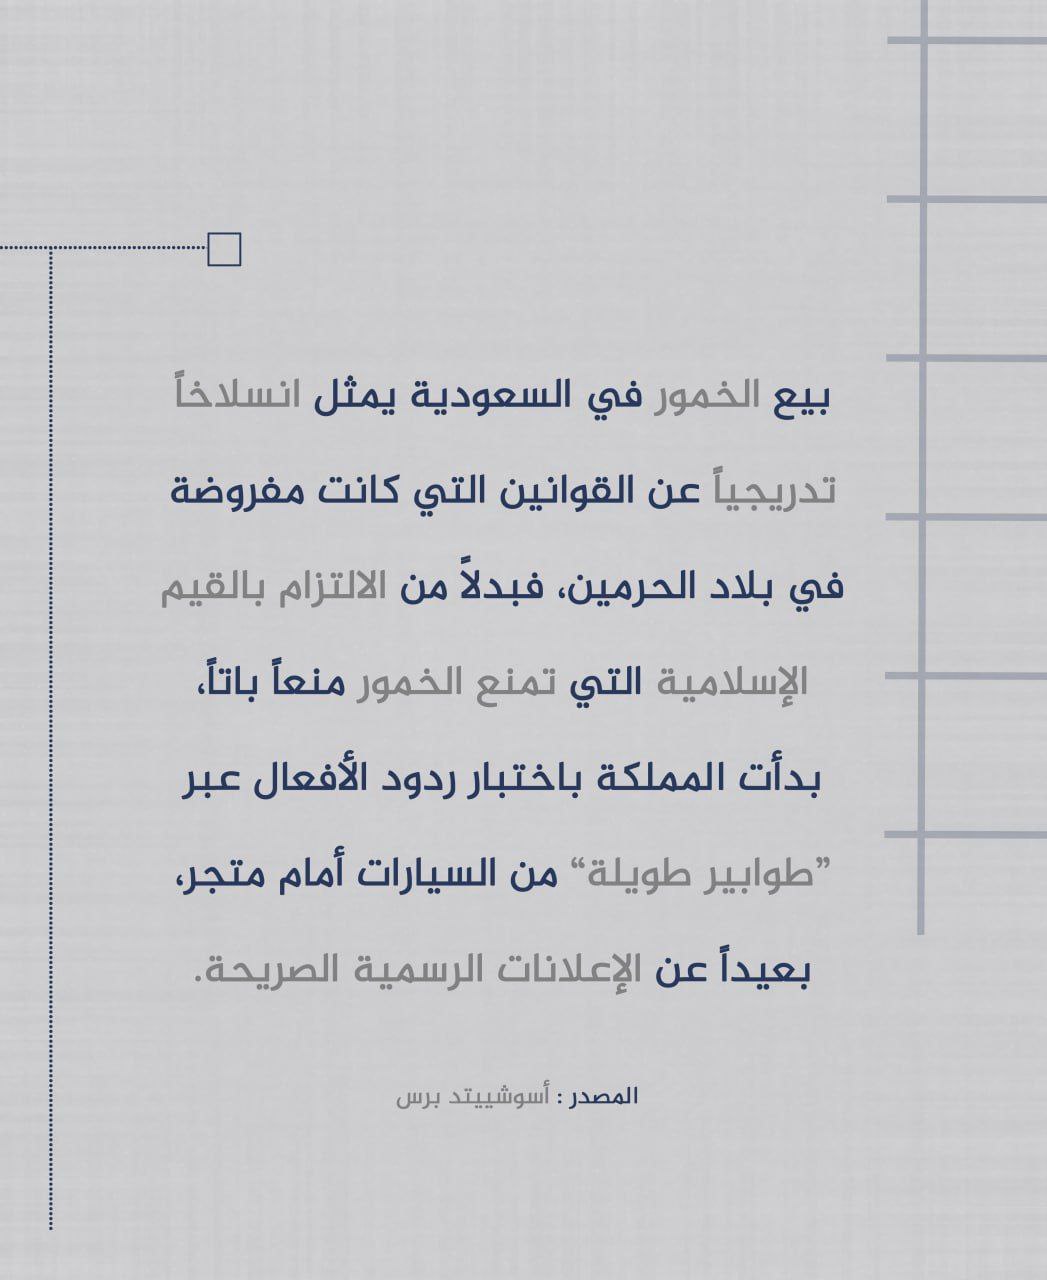 بيع الخمور في السعودية يمثل انسلاخاً
تدريجياً عن القوانين التي كانت مفروضة
في بلاد الحرمين، فبدلاً من الالتزام بالقيم
الإسلامية التي تمنع الخمور منعاً باتاً،
بدأت المملكة باختبار ردود الأفعال عبر
”طوابير طويلة“ من السيارات أمام متجر،
بعيداً عن الإعلانات الرسمية الصريحة.
المصدر : أسوشييتد برس